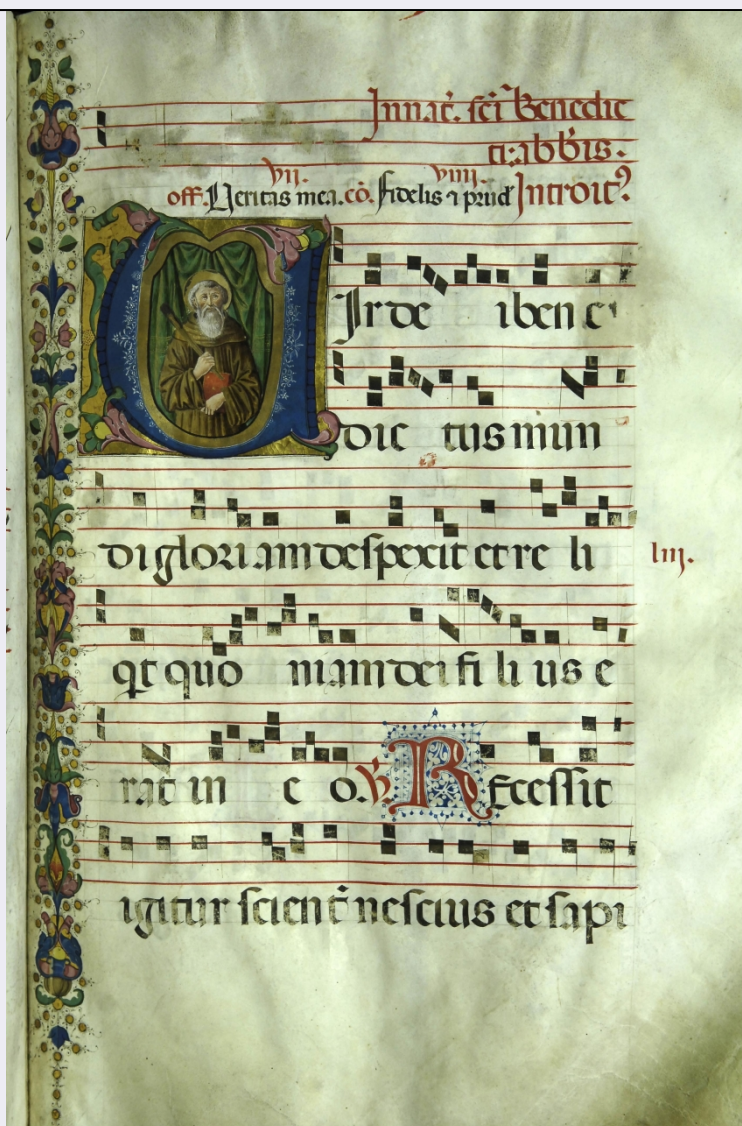 In nat̄. sc̄i Benedic
ti abb̄is.
vii. viiii.
off. Veritas mea. cō. Fidelis ⁊ prud̄ Introit⁹
VIr de i ben e
dic tus mun
di gloriam despexit et re li
qt quo niam dei fi li us e
rat in e o. ℣. REcessit
liij.
igitur scient̄ nescius et sapi